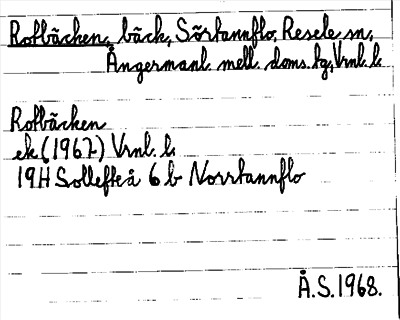 Rofbäcken, bäck, Sörtannflo, Resele sn,
Ångermanl. mell. doms. fg, Vrnl. l.
Rofbäcken
ek (1967) Vrnl. l.
19H Sollefteå 6 b Norrtannflo
Å.S. 1968.